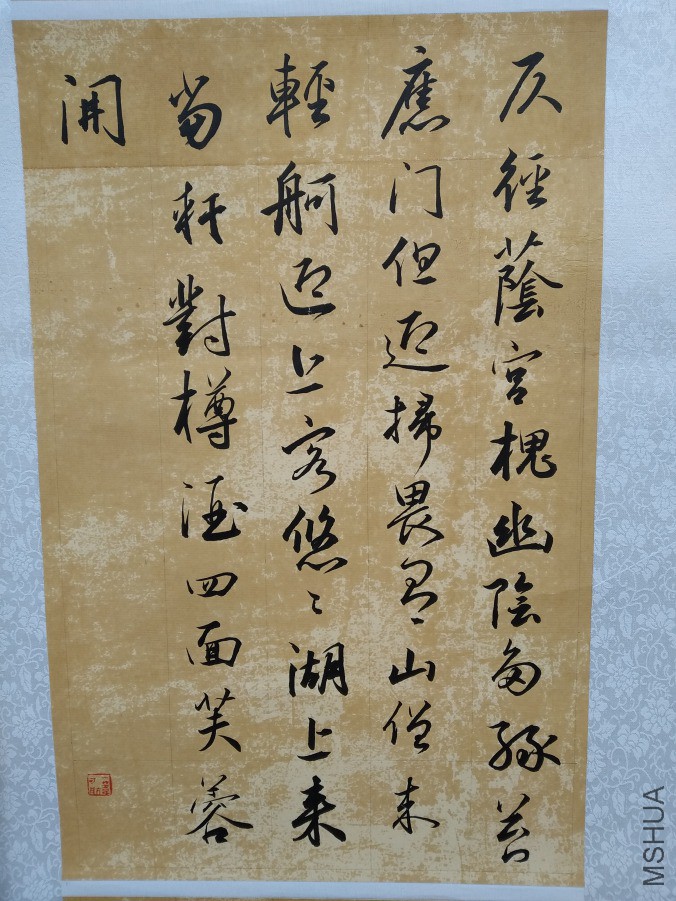 仄徑蔭宮槐幽陰多綠苔
應门但迎掃畏有山僧来
輕舸迎上客悠〻湖上来
當軒對樽酒四面芙蓉
開
MSHUA